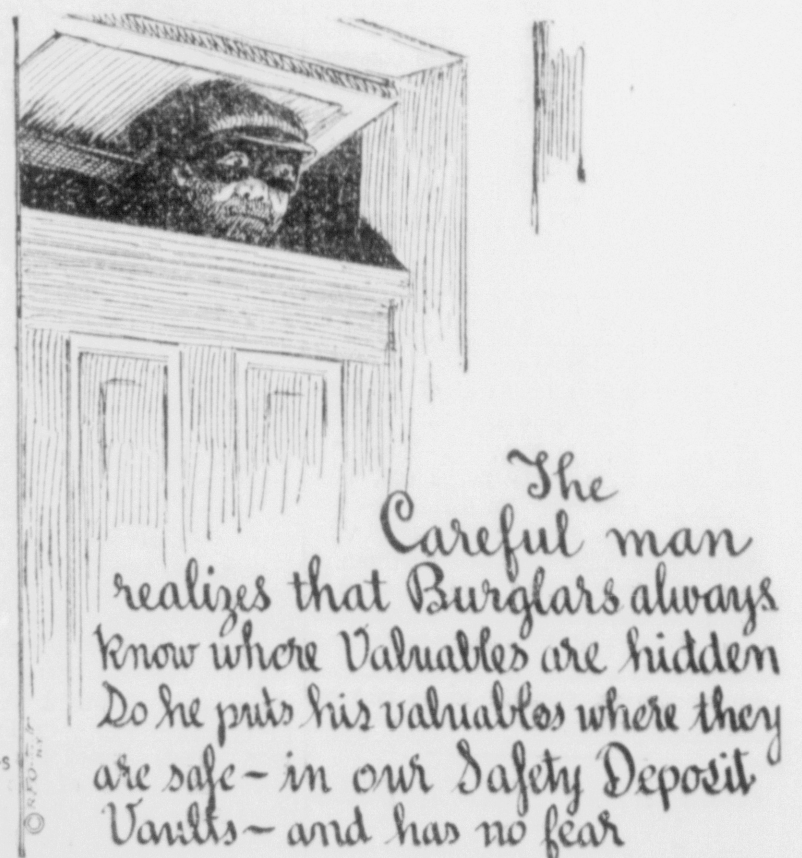 The
Careful man
realizes that Burglars always
know where Valuables are hidden
So he puts his valuables where they
are safe – in our Safety Deposit
Vaults – and has no fear